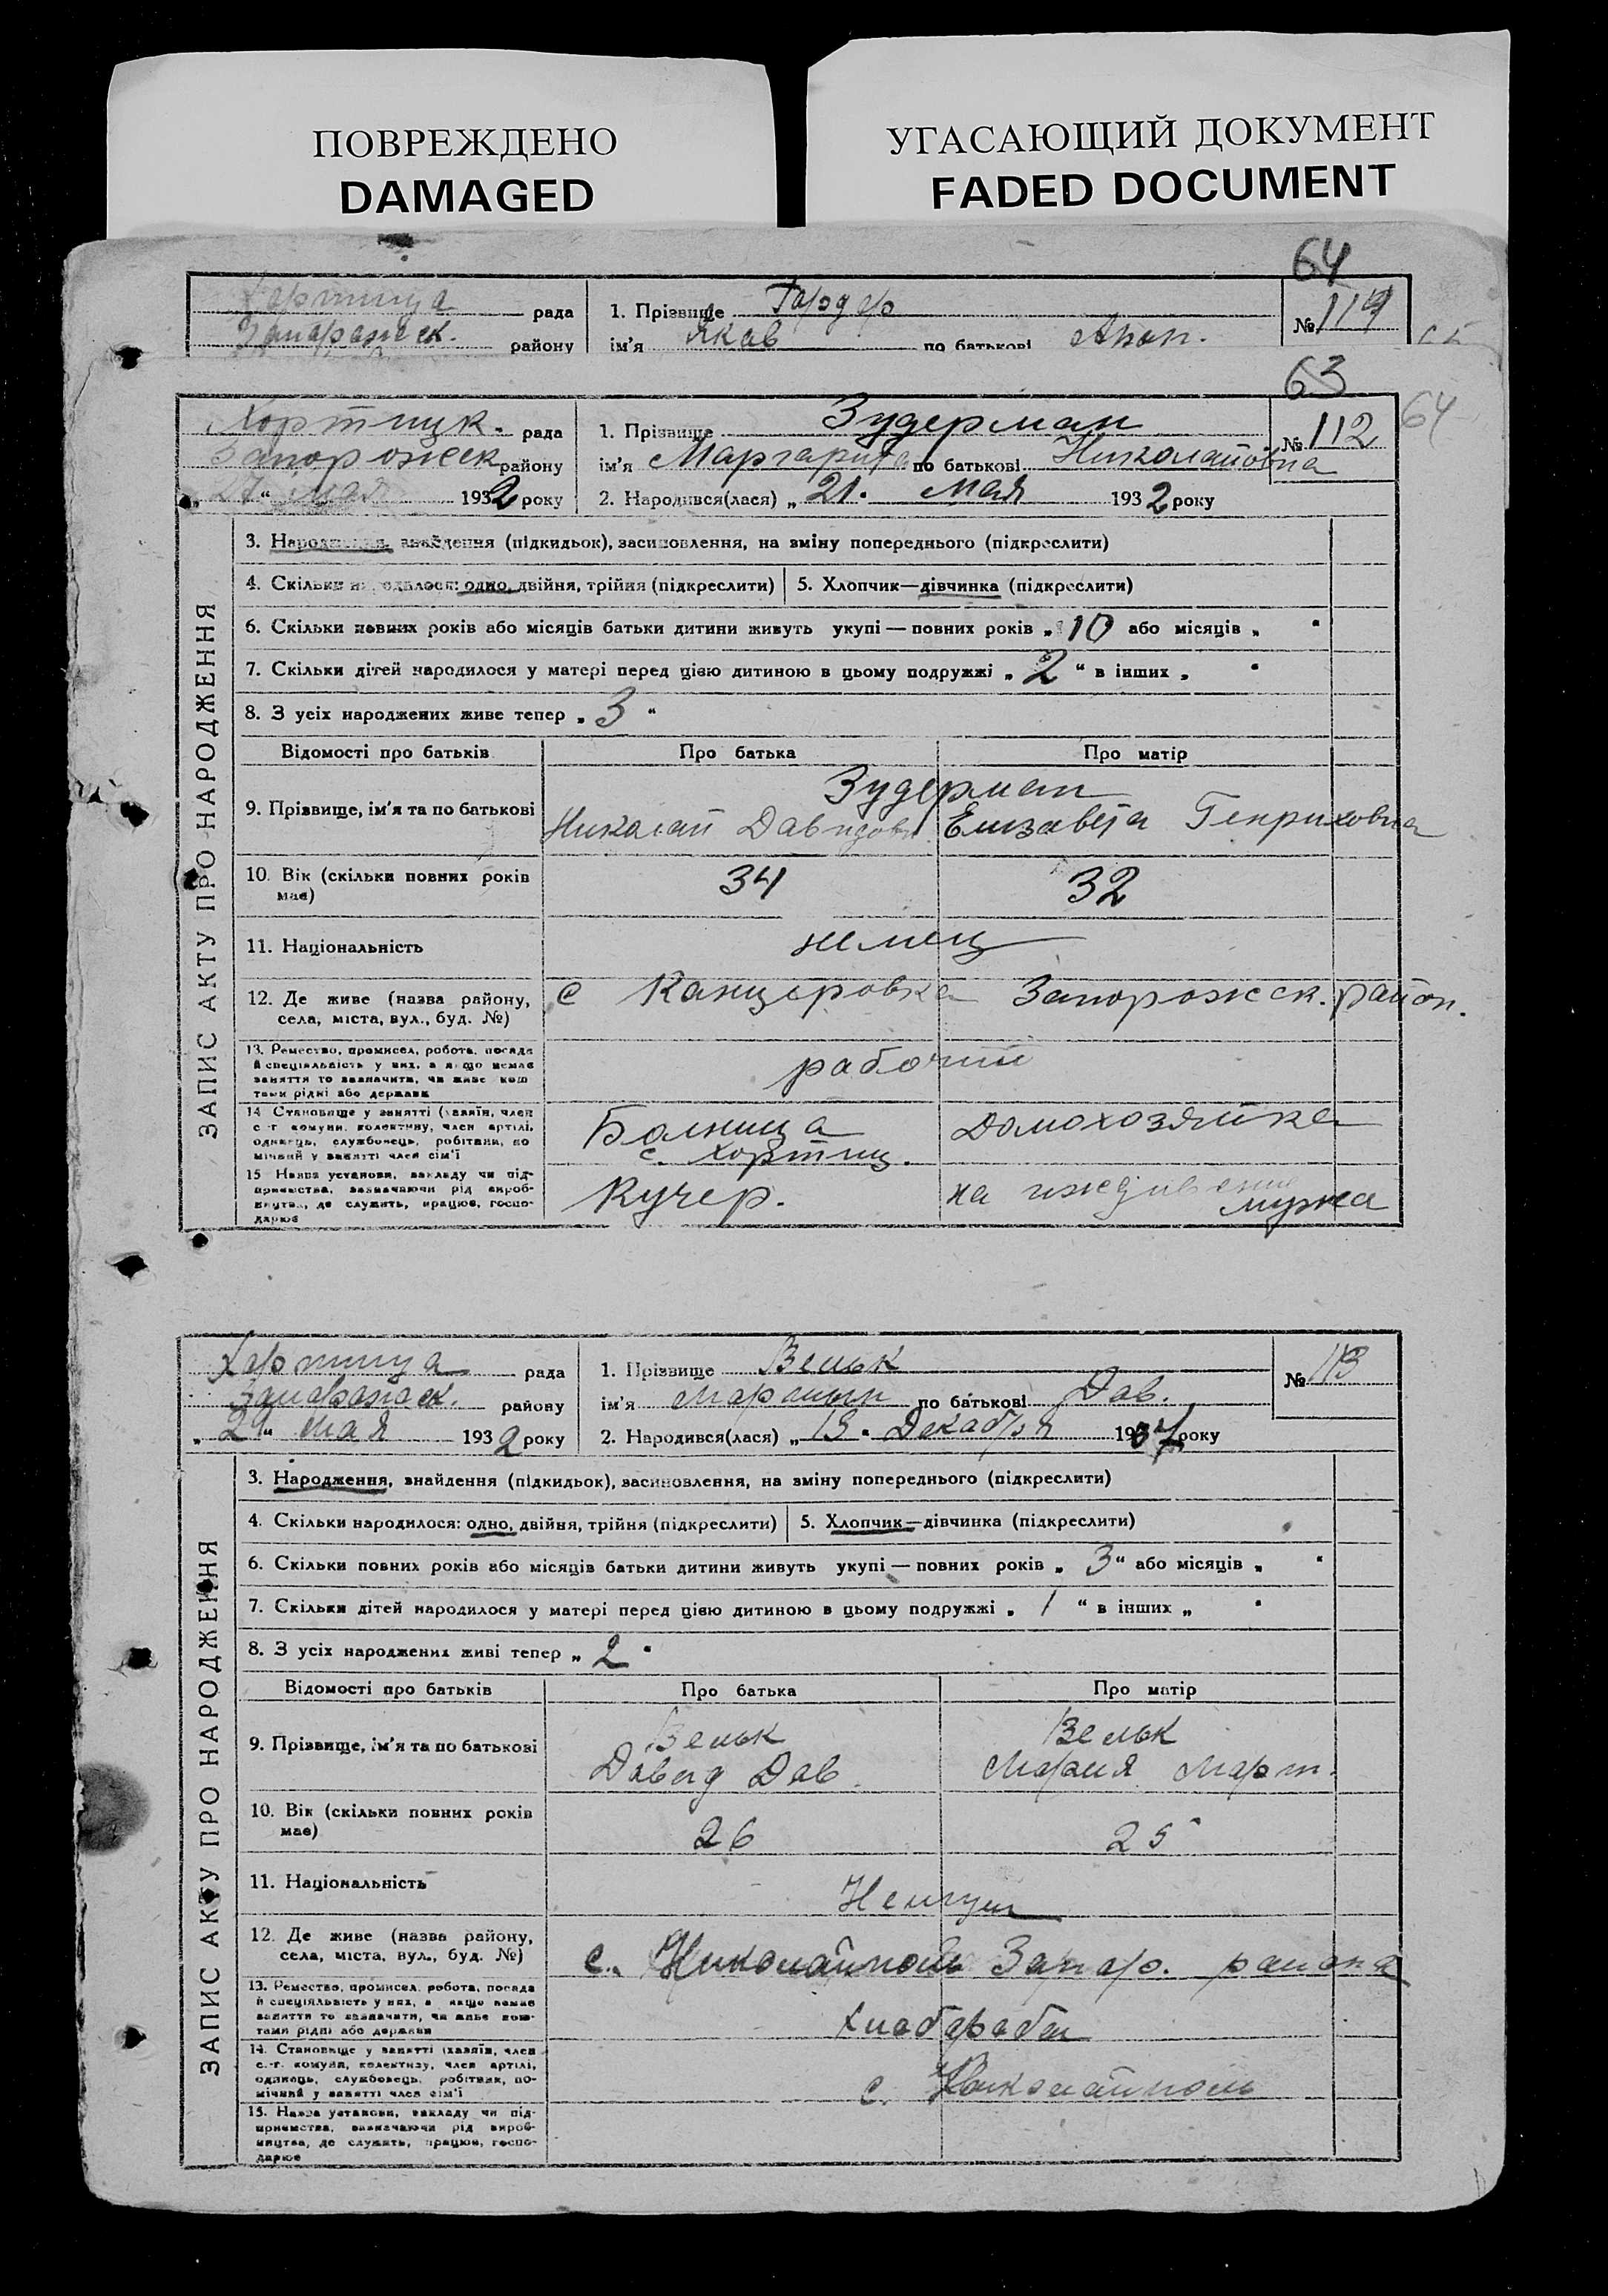 ПОВРЕЖДЕНО
DAMAGED
УГАСАЮЩИЙ ДОКУМЕНТ
FADED DOCUMENT
64
Хортица рада
1. Прізвище
№ 114
Запорожск. району
ім'я Яков по батькові Арон.
63
64
Хортицк. рада
1. Прізвище Зудерман
№ 112
Запорожск району
ім'я Маргарита по батькові Николаевна
„27“ мая 1932 року
2. Народився(лася) „21. мая 1932 року
ЗАПИС АКТУ ПРО НАРОДЖЕННЯ
3. Народження, знайдення (підкидьок), засиновлення, на зміну попереднього (підкреслити)
4. Скільки народилося: одно, двійня, трійня (підкреслити)
5. Хлопчик—дівчинка (підкреслити)
6. Скільки повних років або місяців батьки дитини живуть укупі — повних років „10 або місяців „ “
7. Скільки дітей народилося у матері перед цією дитиною в цьому подружжі „2“ в інших „ “
8. З усіх народжених живе тепер „3“
Відомості про батьків
Про батька
Про матір
9. Прізвище, ім'я та по батькові
Зудерман
Николай Давидов.
Елизавета Генриховна
10. Вік (скільки повних років має)
34
32
11. Національність
немец
12. Де живе (назва району, села, міста, вул., буд. №)
с Канцеровка Запорожск. район.
13. Ремество, промисел, робота, посада й спеціяльність у них, а якщо немає заняття то зазначити, чи живе коштами рідні або держави
рабочий
14. Становище у занятті (хазяїн, член с.-г. комуни, колективу, член артілі, одинець, службовець, робітник, помічний у занятті член сім'ї
Болница
с. Хортиц.
Домохозяйка
15. Назва установи, закладу чи підприємства, зазначаючи рід виробництва, де служить, працює, господарює
Кучер.
на иждивении
мужа
Хортица рада
1. Прізвище Вельк
№ 113
Запорожск. району
ім'я Мартын по батькові Дав.
„2 “ мая 1932 року
2. Народився(лася) „13“ Декабря 19 року
ЗАПИС АКТУ ПРО НАРОДЖЕННЯ
3. Народження, знайдення (підкидьок), засиновлення, на зміну попереднього (підкреслити)
4. Скільки народилося: одно, двійня, трійня (підкреслити)
5. Хлопчик—дівчинка (підкреслити)
6. Скільки повних років або місяців батьки дитини живуть укупі — повних років „3“ або місяців „ “
7. Скільки дітей народилося у матері перед цією дитиною в цьому подружжі „1“ в інших „ “
8. З усіх народжених живі тепер „2“
Відомості про батьків
Про батька
Про матір
9. Прізвище, ім'я та по батькові
Вельк
Давид Дав.
Вельк
Мария Март.
10. Вік (скільки повних років має)
26
25
11. Національність
Немцы
12. Де живе (назва району, села, міста, вул., буд. №)
с. Николайполь Запор. района
13. Ремество, промисел, робота, посада й спеціяльність у них, а якщо немає заняття то зазначити, чи живе коштами рідні або держави
Хлебороб
14. Становище у занятті (хазяїн, член с.-г. комуни, колективу, член артілі, одинець, службовець, робітник, помічний у занятті член сім'ї
с. Николайполь
15. Назва установи, закладу чи підприємства, зазначаючи рід виробництва, де служить, працює, господарює